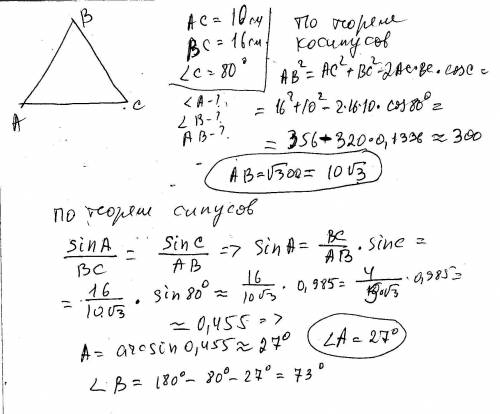 B
A
C
AC = 10 см
BC = 16 см
∠C = 80°
∠A - ?
∠B - ?
AB - ?
По теореме
косинусов
AB² = AC² + BC² - 2AC·BC·cosC =
= 16² + 10² - 2·16·10·cos80° =
= 356 - 320·0,1736 ≈ 300
AB = √300 = 10√3
По теореме синусов
sinA/BC = sinC/AB => sinA = BC/AB · sinC =
= 16/10√3 · sin80° ≈ 16/10√3 · 0,985 = 4/10√3 · 0,985 =
≈ 0,455 =>
A = arcsin0,455 ≈ 27°
∠A = 27°
∠B = 180° - 80° - 27° = 73°